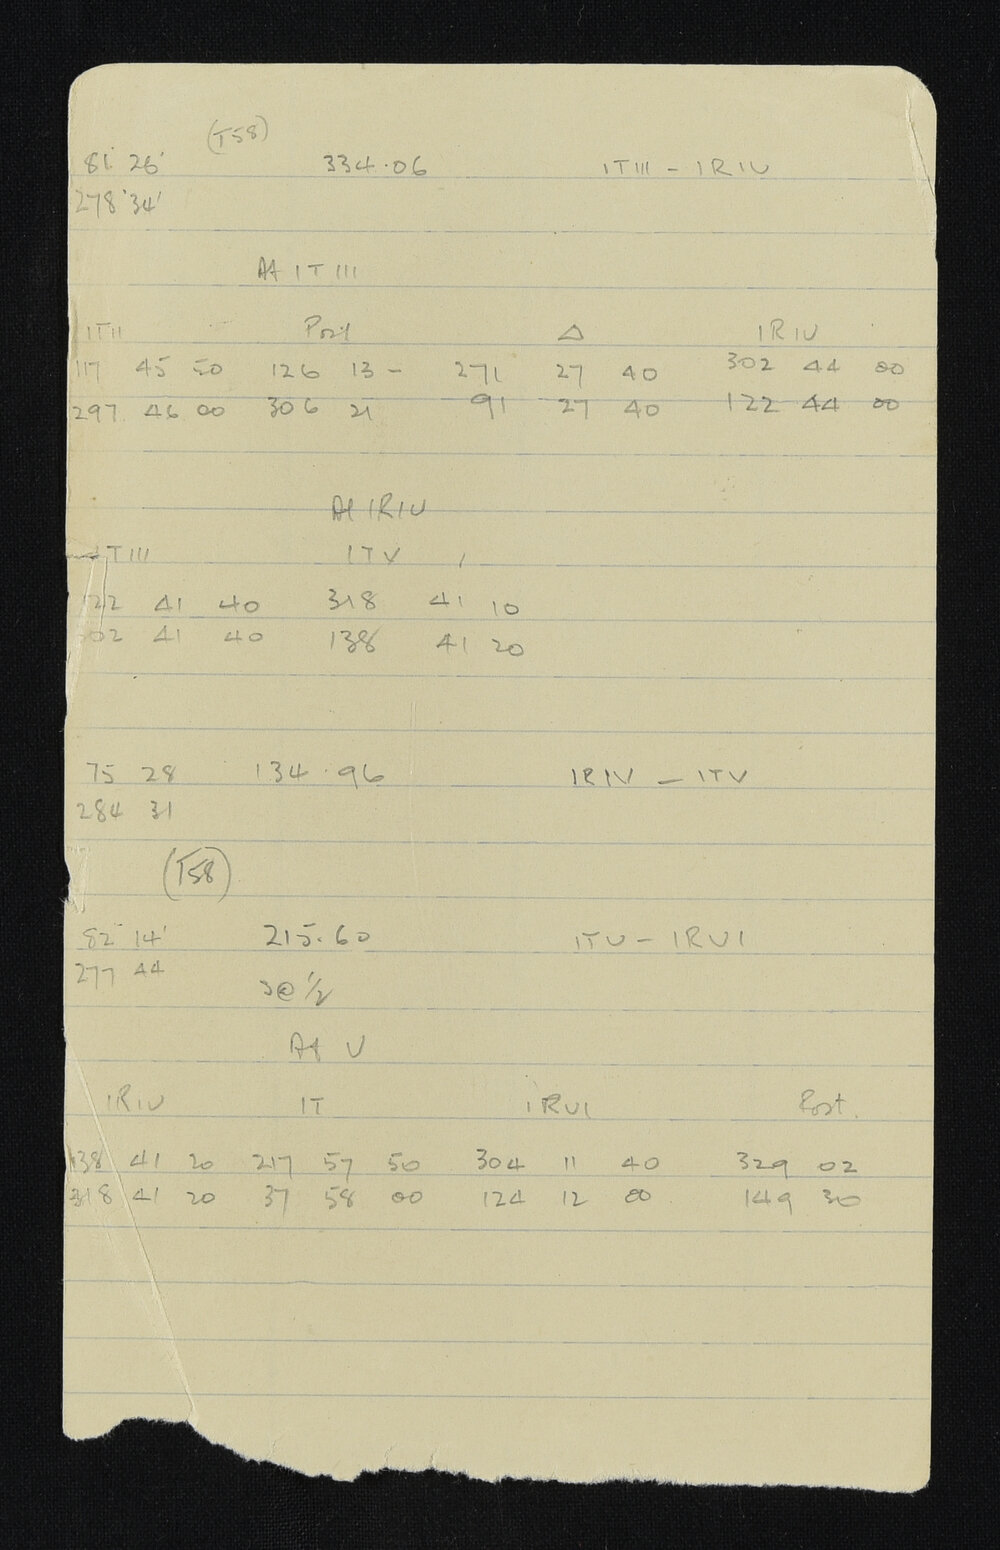 (T58)
81° 26' 334.06 1TIII - 1RIV
278° 34'
At 1TIII
1TII Post △ 1RIV
117 45 50 126 13 - 271 27 40 302 44 00
297 46 00 306 21 91 27 40 122 44 00
At 1RIV
1TIII 1TV
122 41 40 318 41 10
302 41 40 138 41 20
75 28 134.96 1RIV - 1TV
284 31
(T58)
82° 14' 215.60 1TV - 1RVI
277 44
1/2
At V
1RIV 1T 1RVI Post.
138 41 20 217 57 50 304 11 40 329 02
318 41 20 37 58 00 124 12 00 149 30